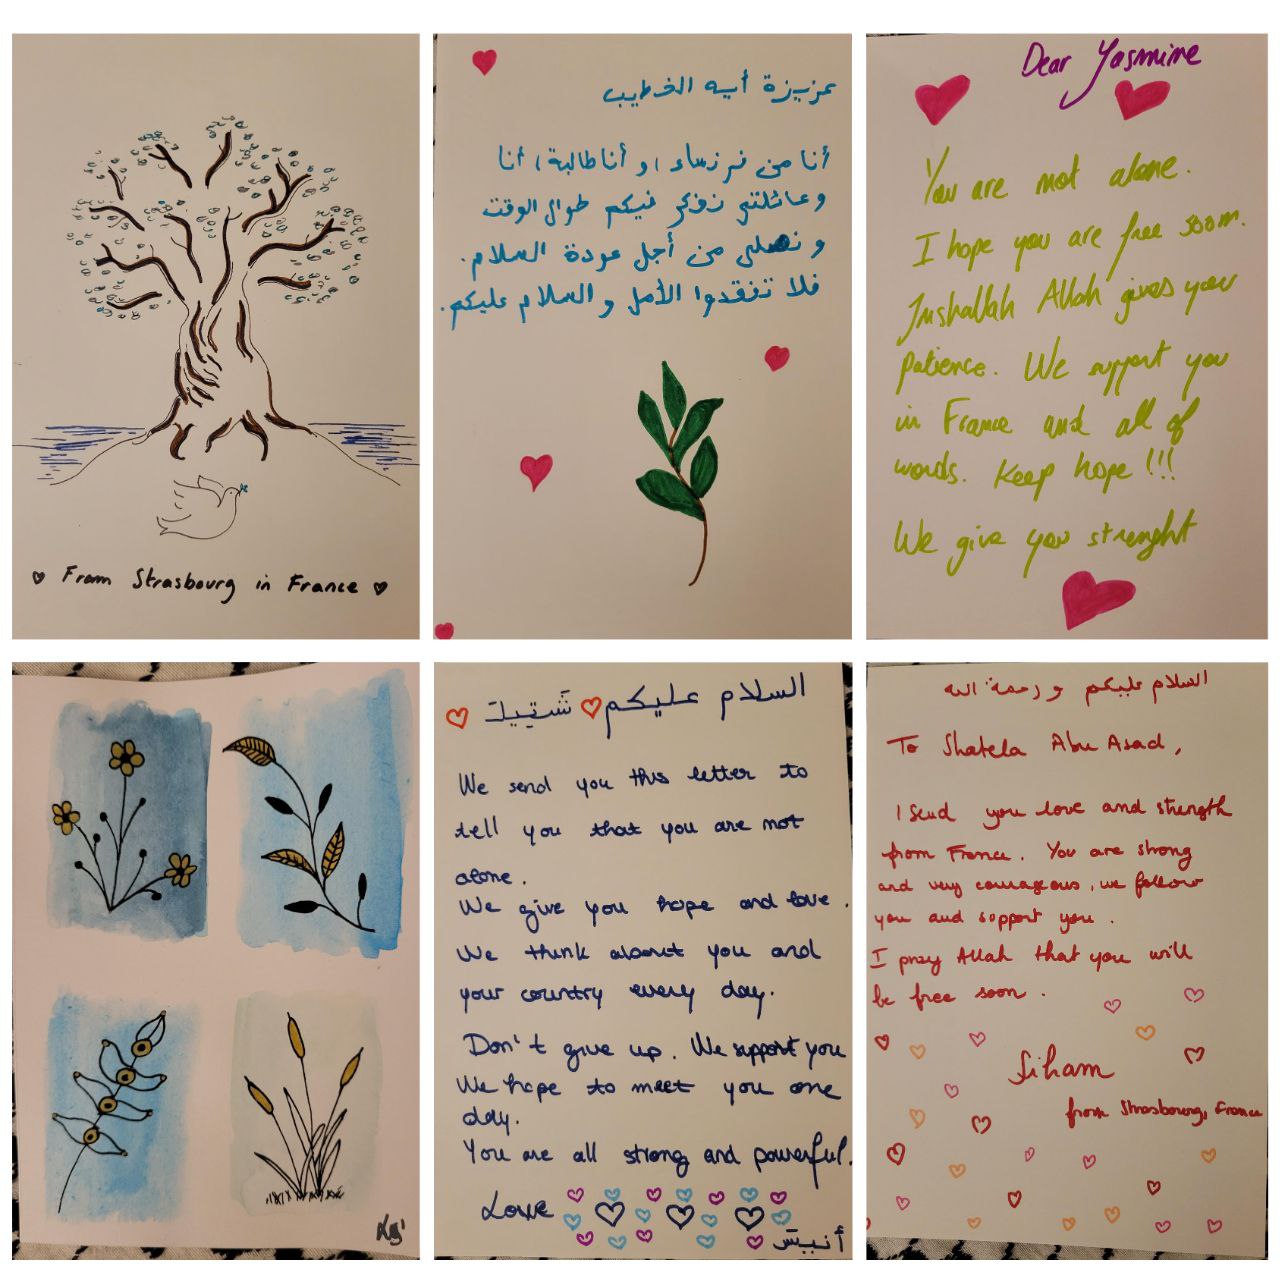 ♡ From Strasbourg in France ♡
عزيزة أيه الخطيب
أنا من فرنساء (و أنا طالبة) أنا
وعائلتي نفكر فيكم طوال الوقت
و نصلي من أجل عودة السلام.
فلا تفقدوا الأمل و السلام عليكم.
Dear Yasmine
You are not alone.
I hope you are free soon.
Inshallah Allah gives you
patience. We support you
in France and all of
words. Keep hope !!!
We give you strenght
السلام عليكم ♡ شَتِيلَة ♡
We send you this letter to
tell you that you are not
alone.
We give you hope and love.
We think about you and
your country every day.
Don't give up. We support you
We hope to meet you one
day.
You are all strong and powerful.
Love
السلام عليكم و رحمة الله
To Shatela Abu Asad,
I send you love and strength
from France. You are strong
and very courageous, we follow
you and support you.
I pray Allah that you will
be free soon.
Siham
from Strasbourg, France